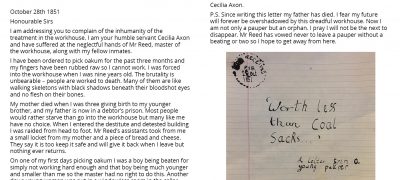 October 28th 1851
Honourable Sirs
I am addressing you to complain of the inhumanity of the
treatment in the workhouse. I am your humble servant Cecilia Axon
and have suffered at the neglectful hands of Mr Reed, master of
the workhouse, along with my fellow inmates.
I have been ordered to pick oakum for the past three months and
my fingers have been rubbed raw so I cannot work. I was forced
into the workhouse when I was nine years old. The brutality is
unbearable – people are worked to death. Many of them are like
walking skeletons with black shadows beneath their bloodshot eyes
and no flesh on their bones.
My mother died when I was three giving birth to my younger
brother, and my father is now in a debtor's prison. Most people
would rather starve than go into the workhouse but many like me
have no choice. When I entered the destitute and detested building
I was raided from head to foot. Mr Reed's assistants took from me
a small locket from my mother and a piece of bread and cheese.
They say it is too keep it safe and will give it back when I leave but
nothing ever returns.
On one of my first days picking oakum I was a boy being beaten for
simply not working hard enough and that boy being much younger
and smaller than me so the master had no right to do this. Another
Cecilia Axon.
P.S. Since writing this letter my father has died. I fear my future
will forever be overshadowed by this dreadful workhouse. Now I
am not only a pauper but an orphan. I pray I will not be the next to
disappear. Mr Reed has vowed never to leave a pauper without a
beating or two so I hope to get away from here.
'Worth less
than Coal
Sacks...'
A letter from a
young pauper